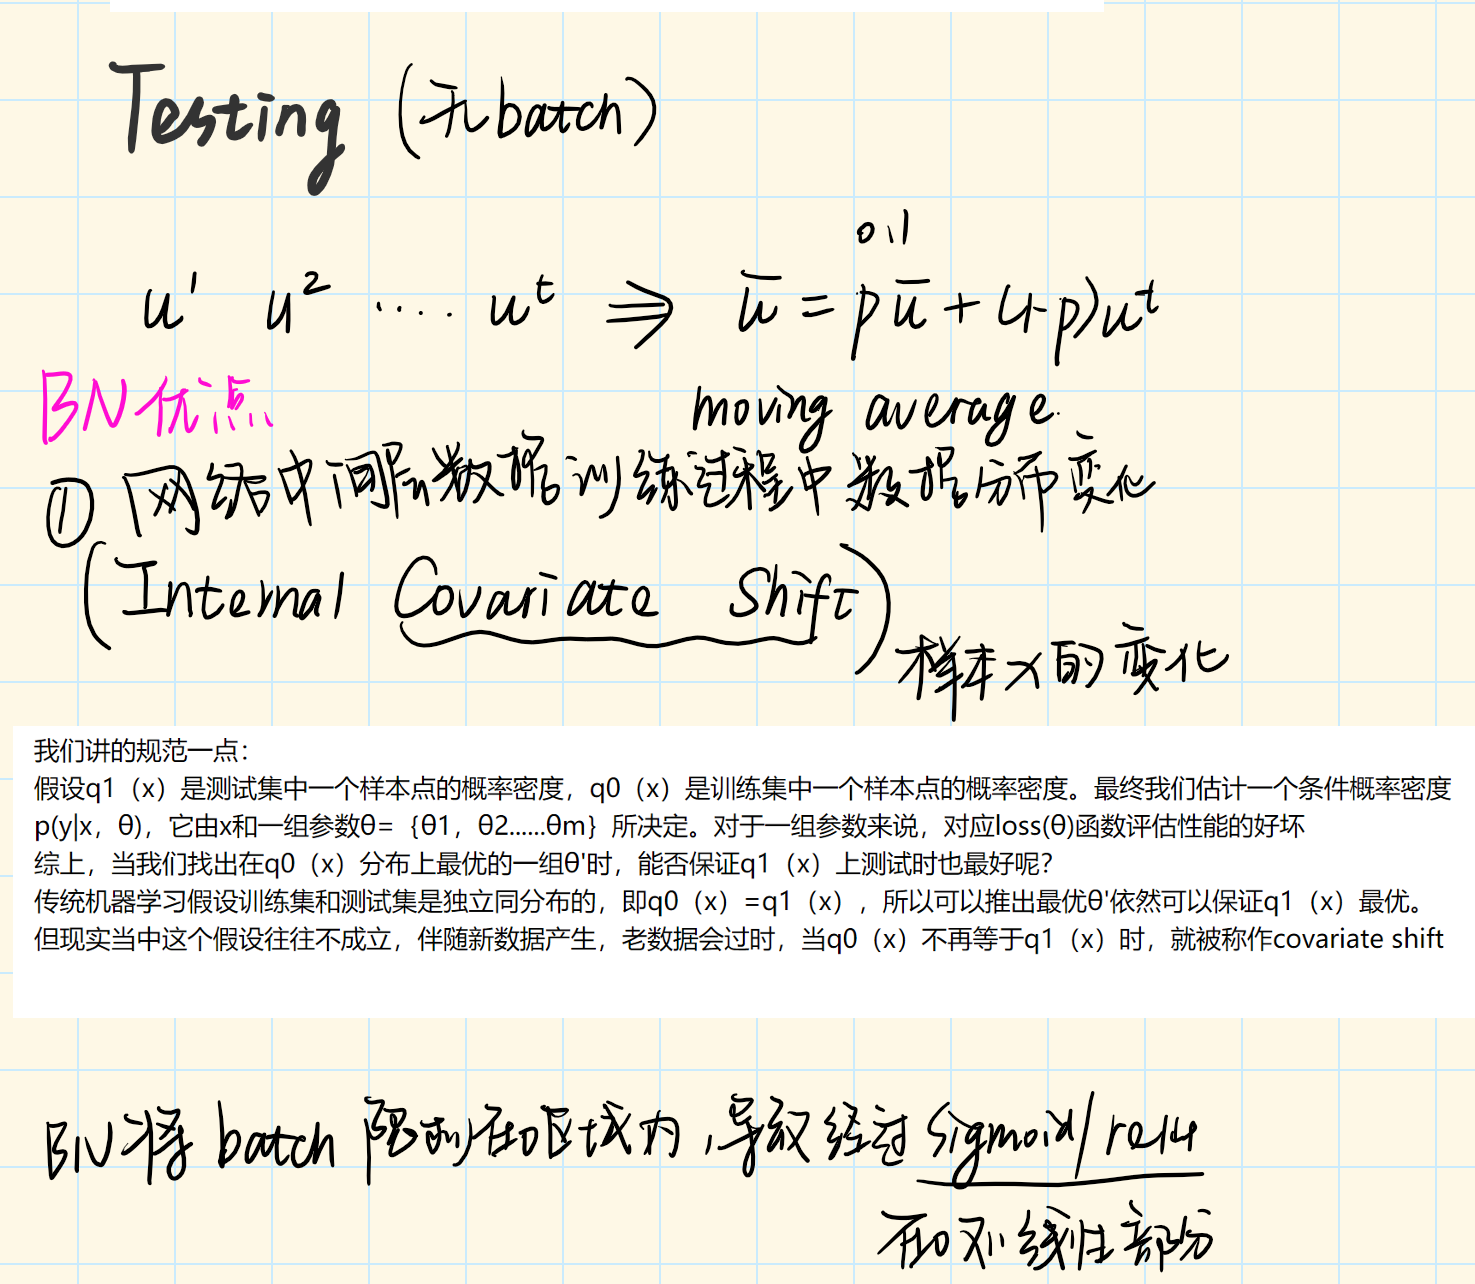 Testing (无batch)
0.1
u¹ u² ···· uᵗ ⇒ ū = pū + (1-p)uᵗ
moving average.
BN优点
① 网络中间层数据训练过程中数据分布变化
(Internal Covariate Shift)
样本x的变化
我们讲的规范一点：
假设q1（x）是测试集中一个样本点的概率密度，q0（x）是训练集中一个样本点的概率密度。最终我们估计一个条件概率密度
p(y|x，θ)，它由x和一组参数θ=｛θ1，θ2......θm｝所决定。对于一组参数来说，对应loss(θ)函数评估性能的好坏
综上，当我们找出在q0（x）分布上最优的一组θ'时，能否保证q1（x）上测试时也最好呢？
传统机器学习假设训练集和测试集是独立同分布的，即q0（x）=q1（x），所以可以推出最优θ'依然可以保证q1（x）最优。
但现实当中这个假设往往不成立，伴随新数据产生，老数据会过时，当q0（x）不再等于q1（x）时，就被称作covariate shift
BN将 batch 限制在0区域内，导致经过 sigmoid/relu
在0对线性部分